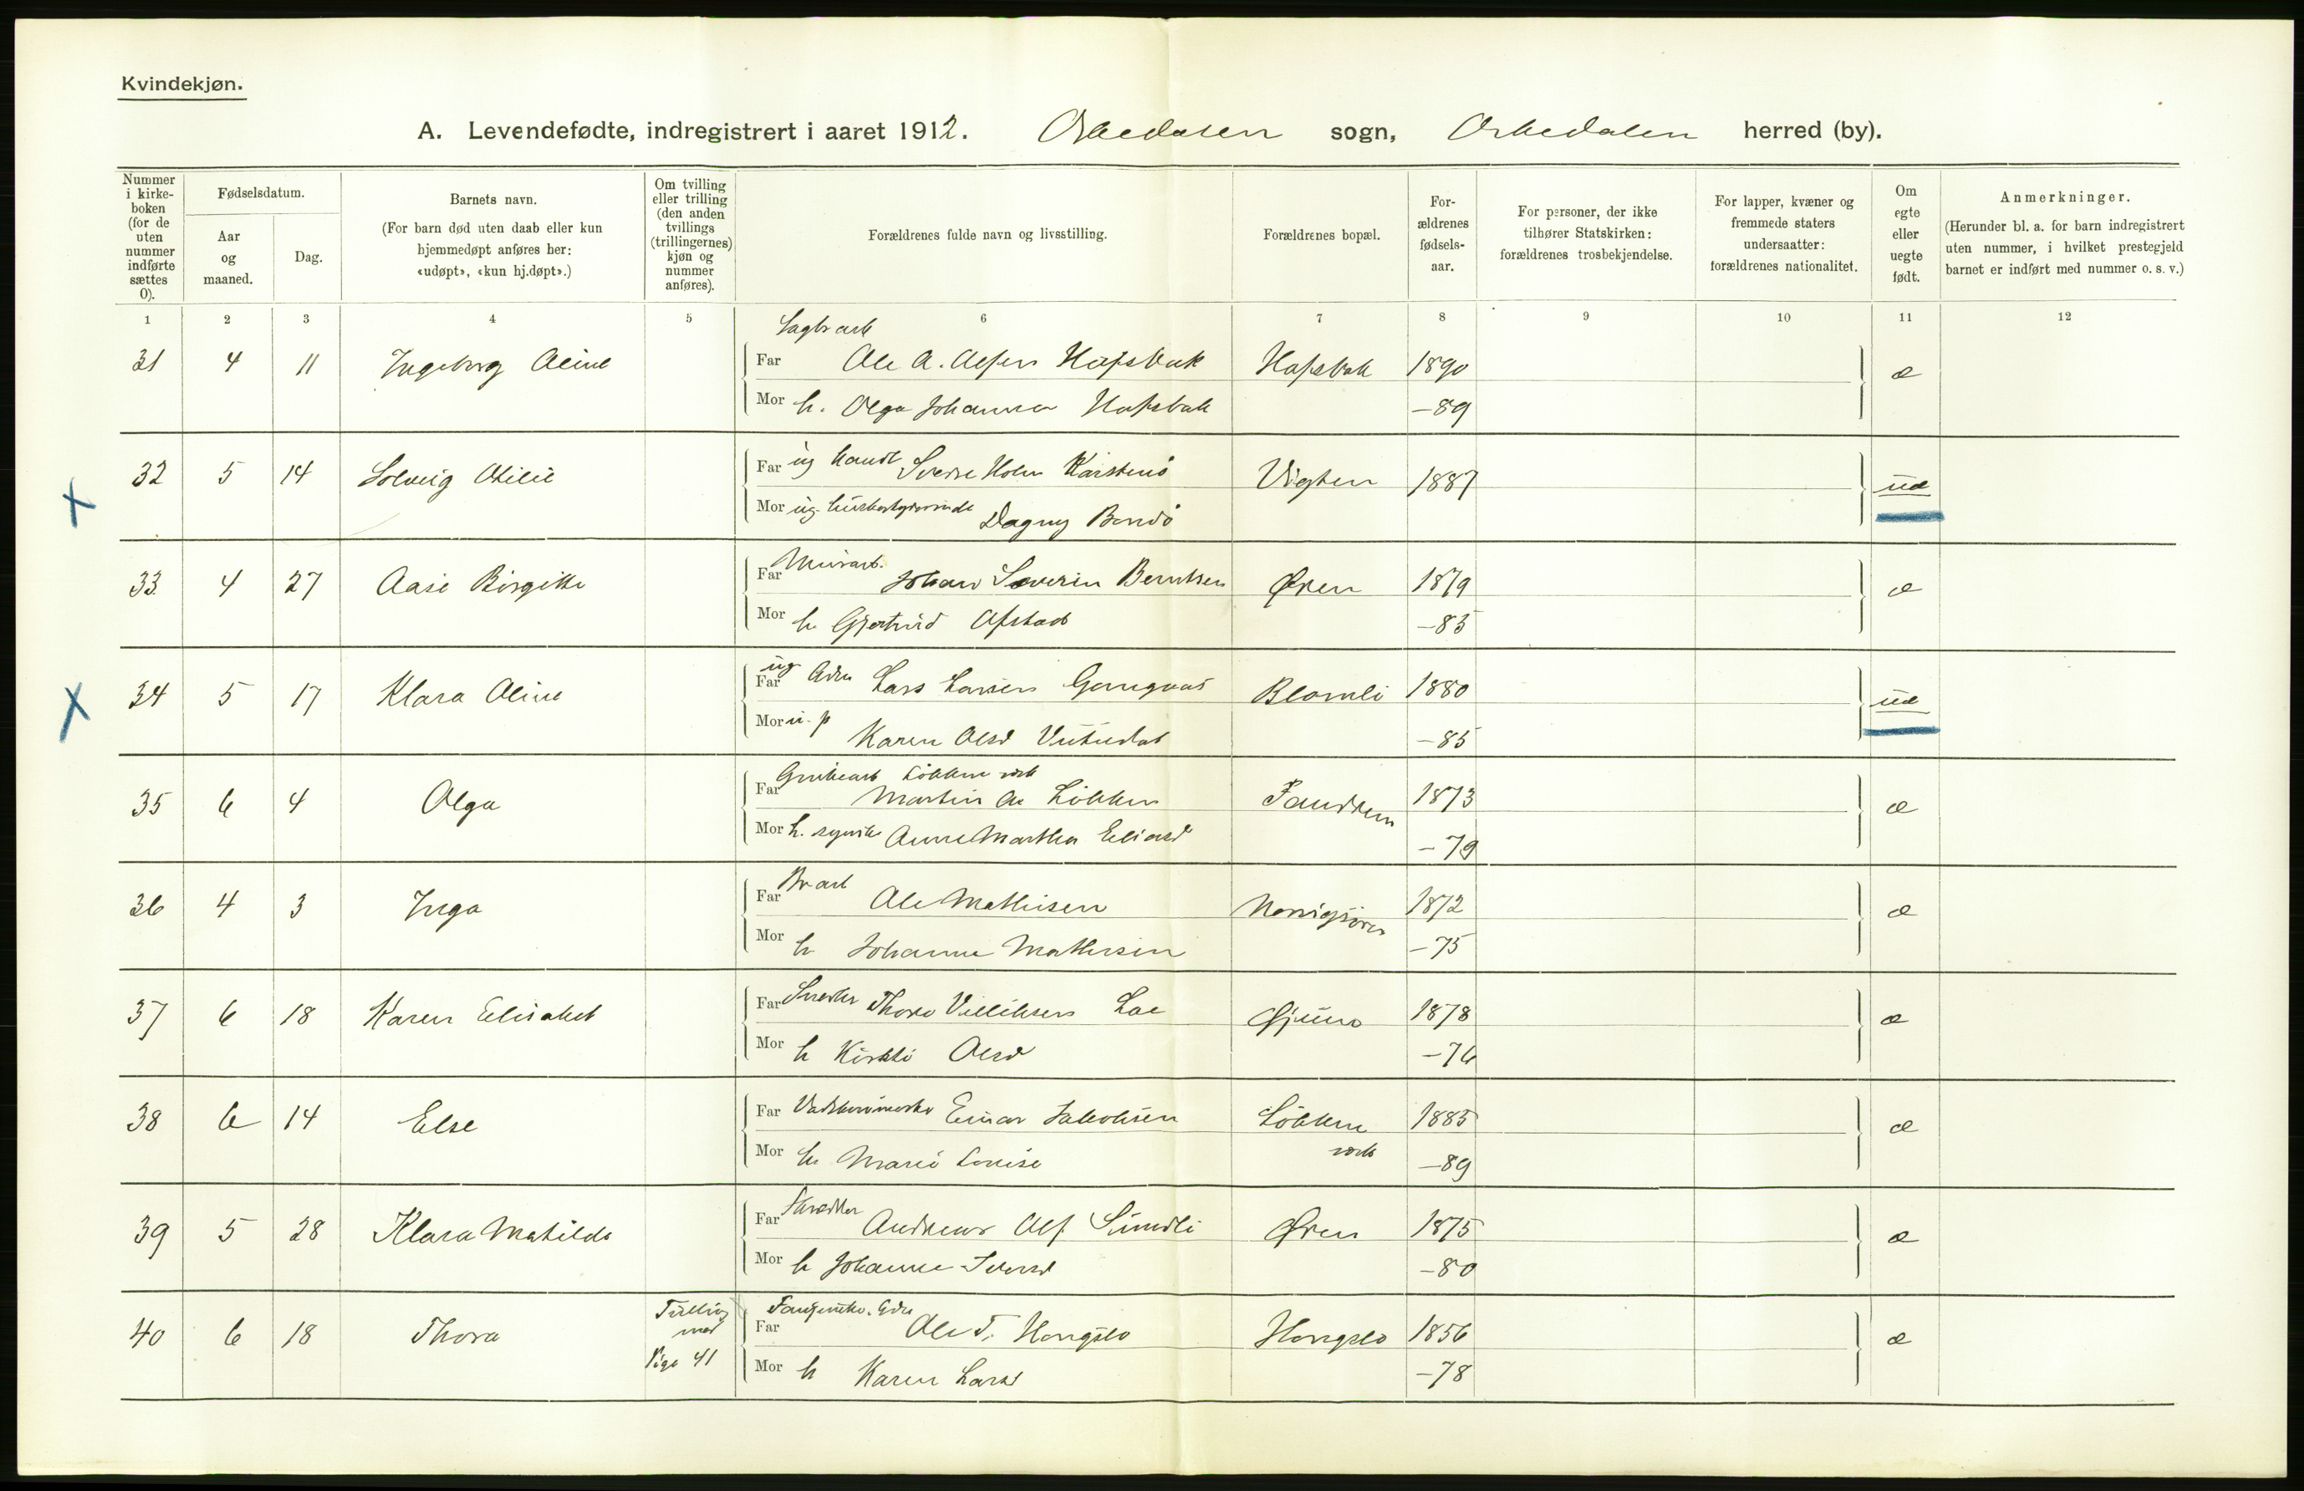 Kvindekjøn.
A. Levendefødte, indregistrert i aaret 1912. Orkedalen sogn, Orkedalen herred (by).
Nummer i kirkeboken (for de uten nummer indførte sættes 0).
Fødselsdatum.
Aar og maaned.
Dag.
Barnets navn.
(For barn død uten daab eller kun hjemmedøpt anføres her: «udøpt», «kun hj.døpt».)
Om tvilling eller trilling (den anden tvillings (trillingernes) kjøn og nummer anføres).
Forældrenes fulde navn og livsstilling.
Forældrenes bopæl.
Forældrenes fødselsaar.
For personer, der ikke tilhører Statskirken: forældrenes trosbekjendelse.
For lapper, kvæner og fremmede staters undersaatter: forældrenes nationalitet.
Om egte eller uegte født.
Anmerkninger.
(Herunder bl. a. for barn indregistrert uten nummer, i hvilket prestegjeld barnet er indført med nummer o. s. v.)
1 2 3 4 5 6 7 8 9 10 11 12
Sagbr arb
31 4 11 Ingeborg Oline Far Ole A. Olsen Hofsbak Hofsbak 1890 æ
Mor h. Olga Johanna Hofsbak –89
32 5 14 Solveig Otilie Far ug handl Sverre Holm Karstenś Vigten 1887 uæ
Mor ug. husbestyrerinde Dagny Bondö
33 4 27 Aase Birgitte Far Murarb. Johan Severin Berntsen Øren 1879 æ
Mor h Gjertrud Ofstad –83
34 5 17 Klara Oline Far ug Lars Larsen Blomli 1880 uæ
Mor u. p Karen Olsd –85
35 6 4 Olga Far Grubearb Løkken verk Martin Løkken 1873 æ
Mor h. Anne Martha Eliasd –79
36 4 3 Inga Far Br arb Ole Mathisen 1872 æ
Mor h Johanna Mathisen –75
37 6 18 Karen Elisabet Far Snedker Thore Villiksen Loe Gjuno 1878 æ
Mor h Kirsti Olsd –76
38 6 14 Else Far Einar Jakobsen Løkken verk 1885 æ
Mor h Marie Lovise –89
39 5 28 Klara Matilde Far Skrædder Andreas Olf Sundli Øren 1875 æ
Mor h Johanne Iversd –80
40 6 18 Thora Tvilling med Pige 41 Far Ole T. Hongslo Hongslo 1856 æ
Mor h Karen Larsd –78